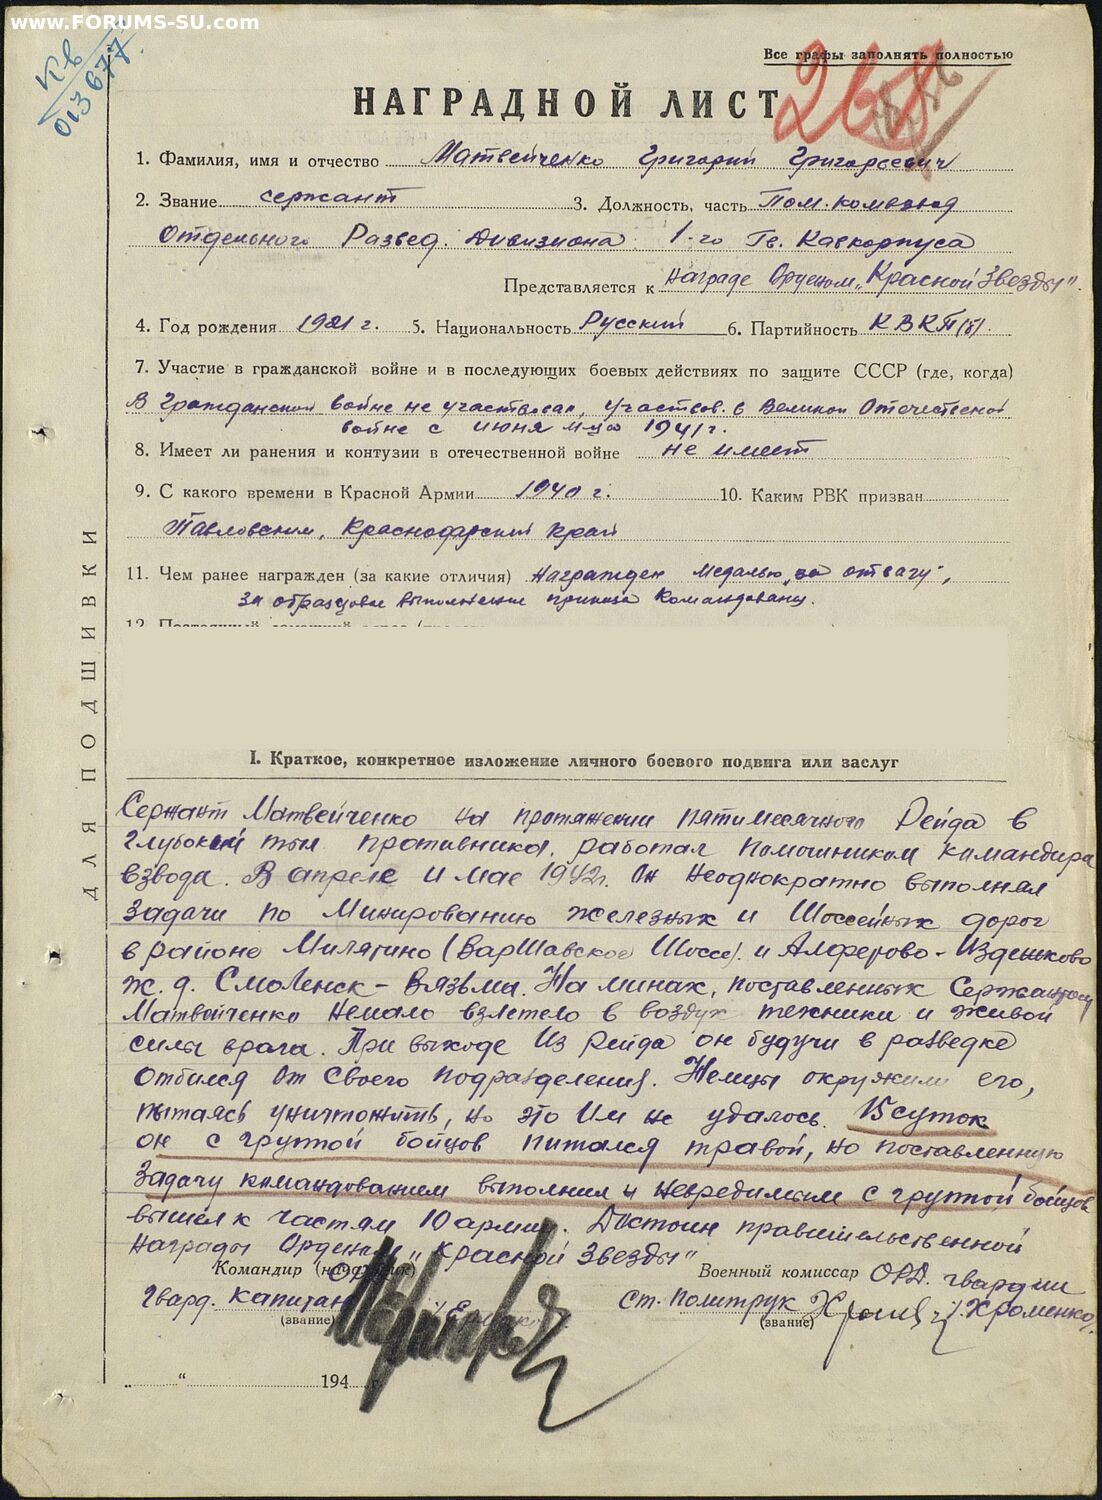 www.FORUMS-SU.com
Кв
013677
Все графы заполнять полностью
НАГРАДНОЙ ЛИСТ
268
1. Фамилия, имя и отчество Матвейченко Григорий Григорьевич
2. Звание сержант 3. Должность, часть Пом. комвзвод
Отдельного Развед. Дивизиона 1-го Гв. Кавкорпуса
Представляется к награде Орденом „Красной Звезды"
4. Год рождения 1921 г. 5. Национальность Русский 6. Партийность КВКП(б).
7. Участие в гражданской войне и в последующих боевых действиях по защите СССР (где, когда)
В Гражданской войне не участвовал, участвов. в Великой Отечественой
войне с июня м-ца 1941 г.
8. Имеет ли ранения и контузии в отечественной войне не имеет
9. С какого времени в Красной Армии 1940 г. 10. Каким РВК призван
Павловским, Краснодарский край
11. Чем ранее награжден (за какие отличия) Награжден медалью „за отвагу",
за образцовое выполнение приказа командованц.
ДЛЯ ПОДШИВКИ
I. Краткое, конкретное изложение личного боевого подвига или заслуг
Сержант Матвейченко на протяжении пятимесячного Рейда в
глубокий тыл противника, работал помошником командира
взвода. В апреле и мае 1942г. Он неоднократно выполнял
задачи по Минированию железных и Шоссейных дорог
в районе Милятино (Варшавское Шоссе) и Алферово-Издешково
ж. д. Смоленск – Вязьма. На минах, поставленных Сержантом
Матвейченко немало взлетело в воздух техники и живой
силы врага. При выходе Из рейда он будучи в разведке
отбился от своего подразделения. Немцы окружили его,
пытаясь уничтожить, но это им не удалось. 15 суток
он с группой бойцов питался травой, но поставленную
задачу командованием выполнил и невредимым с группой бойцов
вышел к частям 10 армии. Достоин правительственной
награды Орденом „Красной Звезды"
Командир (начальник) ОРД Военный комиссар ОРД. гвардии
Гвард. капитан /Ермак/ ст. политрук /Хроменко/.
(звание) (звание)
„ " 194 г.